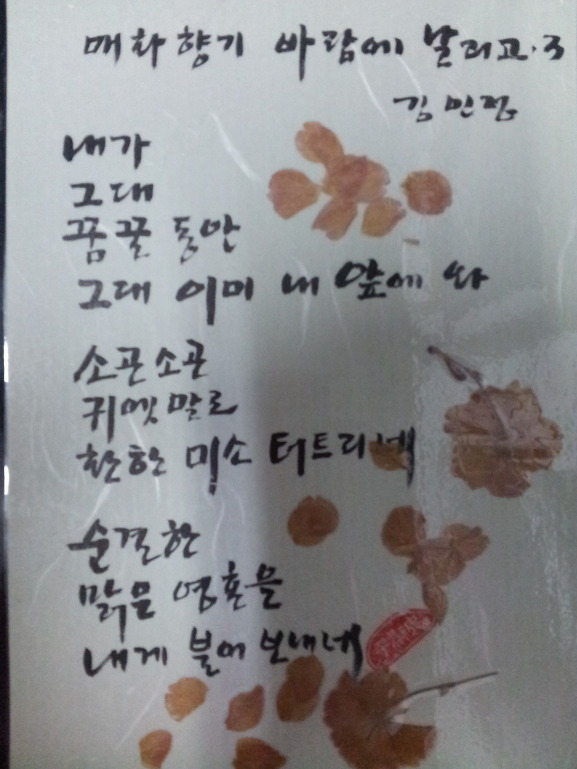 매화향기 바람에 날리고·3
김민정
내가
그대
꿈꿀 동안
그대 이미 내 앞에 와
소곤소곤
귀엣말로
환한 미소 터트리네
순결한
맑은 영혼을
내게 불어 보내네